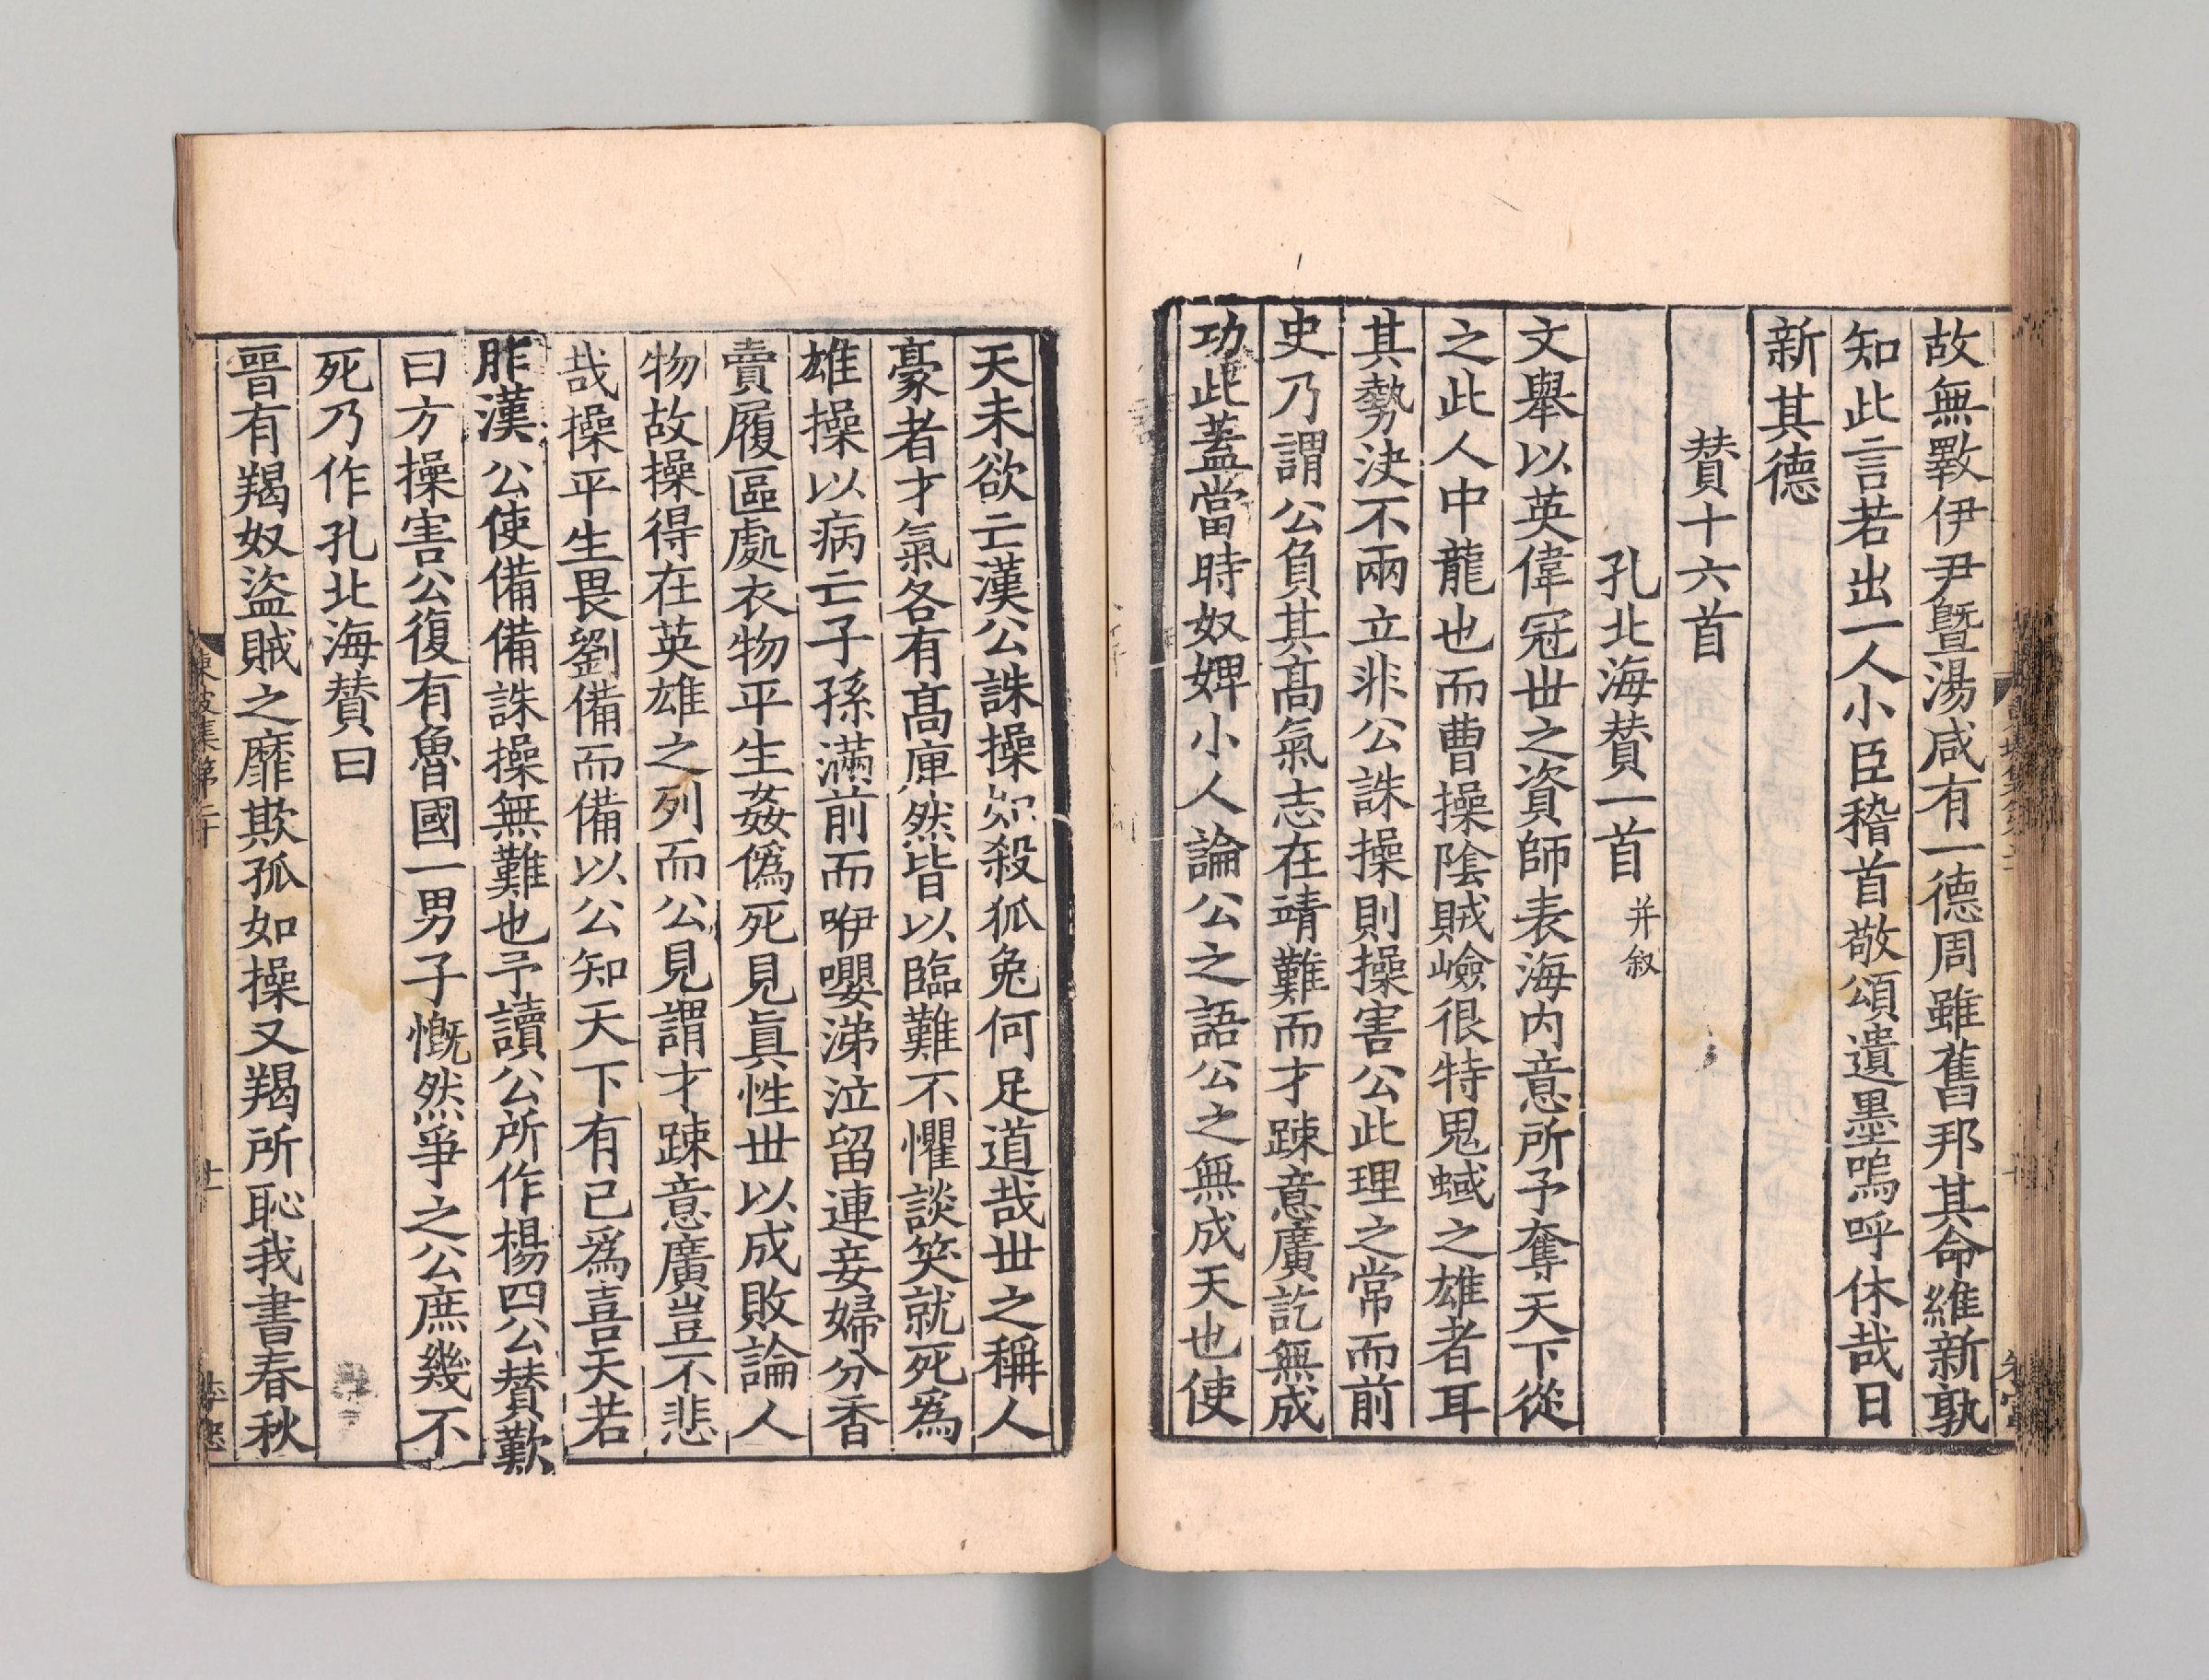 故無斁伊尹曁湯咸有一德周雖舊邦其命維新孰
知此言若出一人小臣稽首敬頌遺墨嗚呼休哉日
新其德
賛十六首
孔北海賛一首 并叙
文舉以英偉冠丗之資師表海内意所予奪天下從
之此人中龍也而曹操陰賊嶮很特鬼蜮之雄者耳
其勢决不兩立非公誅操則操害公此理之常而前
史乃謂公負其髙氣志在靖難而才踈意廣訖無成
功此蓋當時奴婢小人論公之語公之無成天也使
天未欲亡漢公誅操如殺狐兔何足道哉丗之稱人
豪者才氣各有髙庳然皆以臨難不懼談笑就死爲
雄操以病亡子孫滿前而咿嚶涕泣留連妾婦分香
賣履區處衣物平生姦僞死見眞性丗以成敗論人
物故操得在英雄之列而公見謂才踈意廣豈不悲
哉操平生畏劉備而備以公知天下有己爲喜天若
胙漢公使備備誅操無難也予讀公所作楊四公賛歎
曰方操害公復有魯國一男子慨然爭之公庶幾不
死乃作孔北海賛曰
晋有羯奴盜賊之靡欺孤如操又羯所恥我書春秋
東坡集第二十